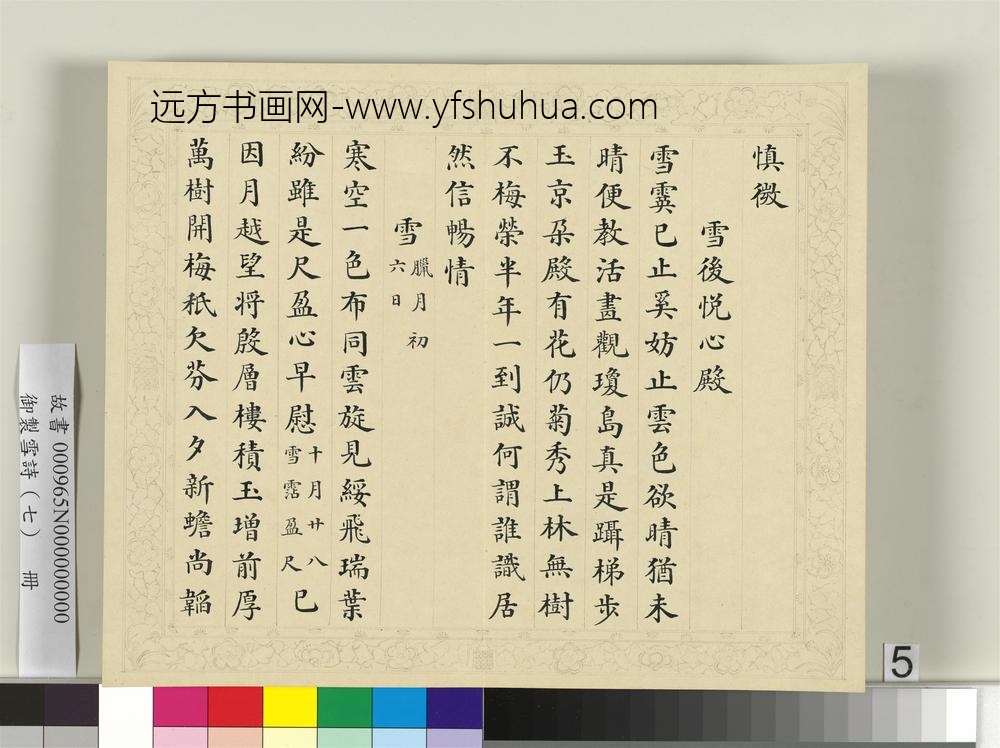 远方书画网-www.yfshuhua.com
慎微
雪後悦心殿
雪霙已止奚妨止雲色欲晴猶未
晴便教活畫觀瓊島真是躡梯步
玉京朶殿有花仍菊秀上林無樹
不梅榮半年一到誠何謂誰識居
然信暢情
雪臘月初六日
寒空一色布同雲旋見綏飛瑞葉
紛雖是尺盈心早慰十月廿八雪霑盈尺已
因月越望将殷層樓積玉增前厚
萬樹開梅秖欠芬入夕新蟾尚韜
故書 000965N000000000
御製雪詩（七） 冊
5